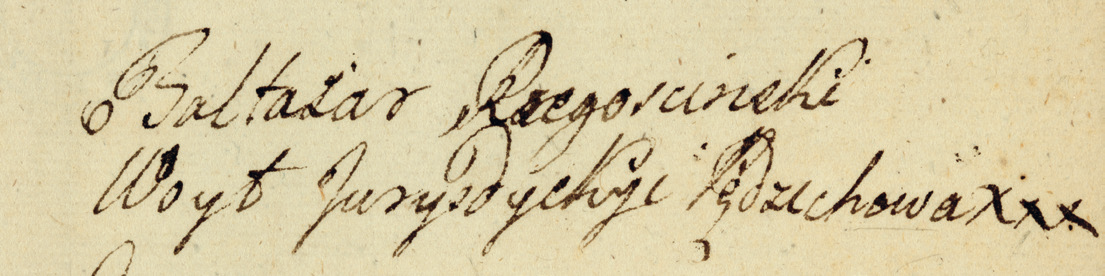 Baltazar Rzegoscinski
Woyt Jurysdyckyi Pędzichowa xxx